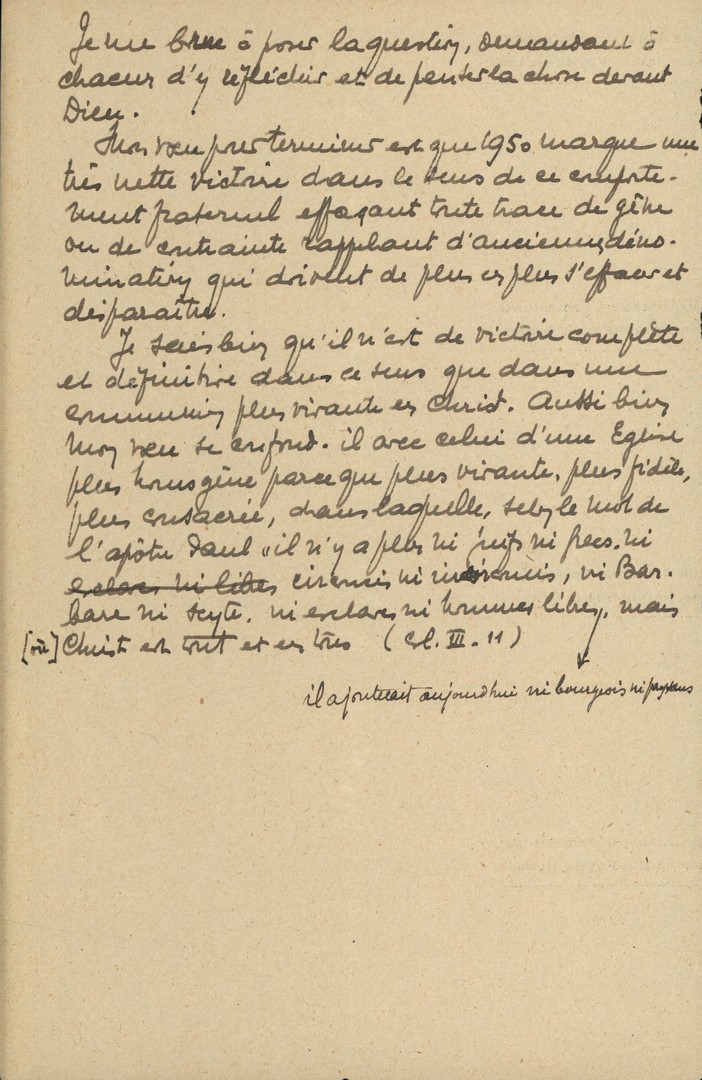 Je me borne à poser la question, demandant à
chacun d'y réfléchir et de penser la chose devant
Dieu.
Mon vœu pour terminer est que 1950 marque une
très nette victoire dans le sens de ce comporte-
ment fraternel effaçant toute trace de gêne
ou de contrainte rappelant d'anciennes déno-
minations qui doivent de plus en plus s'effacer et
disparaître.
Je sais bien qu'il n'est de victoire complète
et définitive dans ce sens que dans une
communion plus vivante en Christ. Aussi bien
mon vœu se confond-il avec celui d'une Eglise
plus homogène parce que plus vivante, plus fidèle,
plus consacrée, dans laquelle, selon le mot de
l'apôtre Paul "il n'y a plus ni juifs ni grecs, ni
esclaves ni libres circoncis ni incirconcis, ni Bar-
bare ni scyte, ni esclaves ni hommes libres, mais
[où] Christ est tout et en tous (Col. III. 11)
il ajouterait aujourd'hui ni bourgeois ni paysans